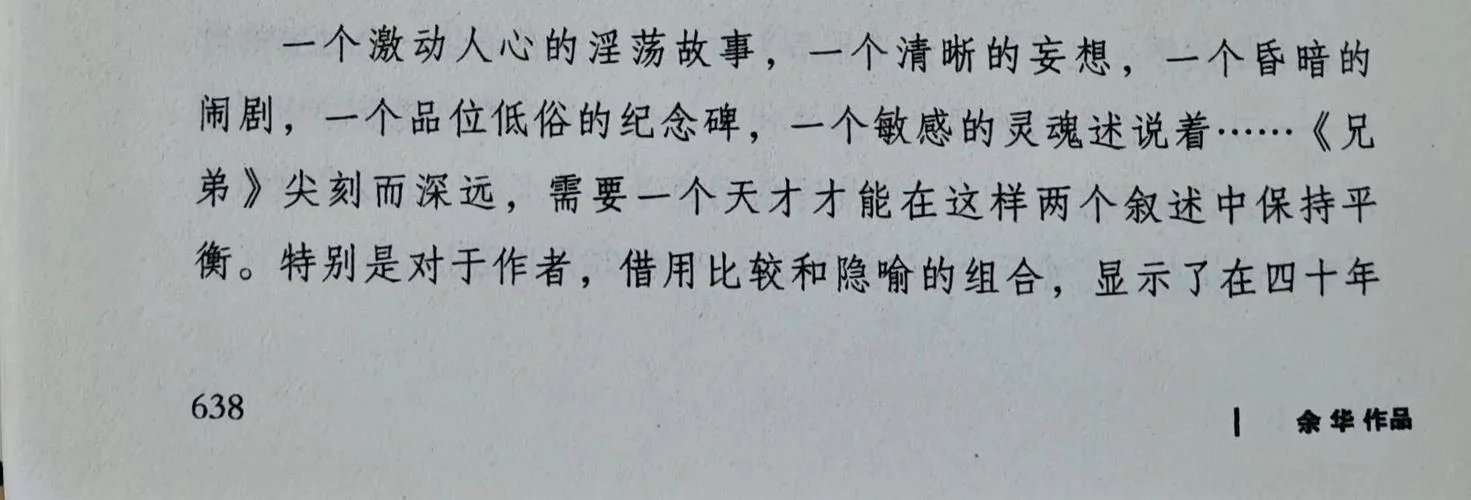 一个激动人心的淫荡故事，一个清晰的妄想，一个昏暗的
闹剧，一个品位低俗的纪念碑，一个敏感的灵魂述说着……《兄
弟》尖刻而深远，需要一个天才才能在这样两个叙述中保持平
衡。特别是对于作者，借用比较和隐喻的组合，显示了在四十年
638
余华作品